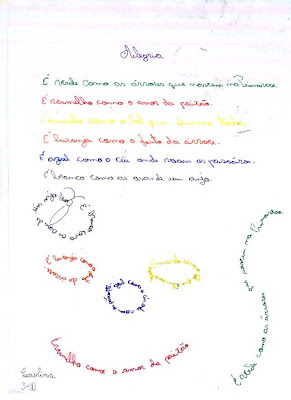 Alegria
É verde como as árvores que nascem na Primavera.
É vermelho como o amor da paixão.
É amarelo como o Sol que ilumina
É laranja como o fruto da árvore.
É azul como o céu onde voam os pássaros.
É branco como as asas de um anjo.
É branco como as asas de um anjo
É laranja como o fruto da árvore.
É azul como o céu onde
É amarelo como o
É verde como as árvores que nascem na Primavera
É vermelho como o amor da paixão
Carolina
3ºD